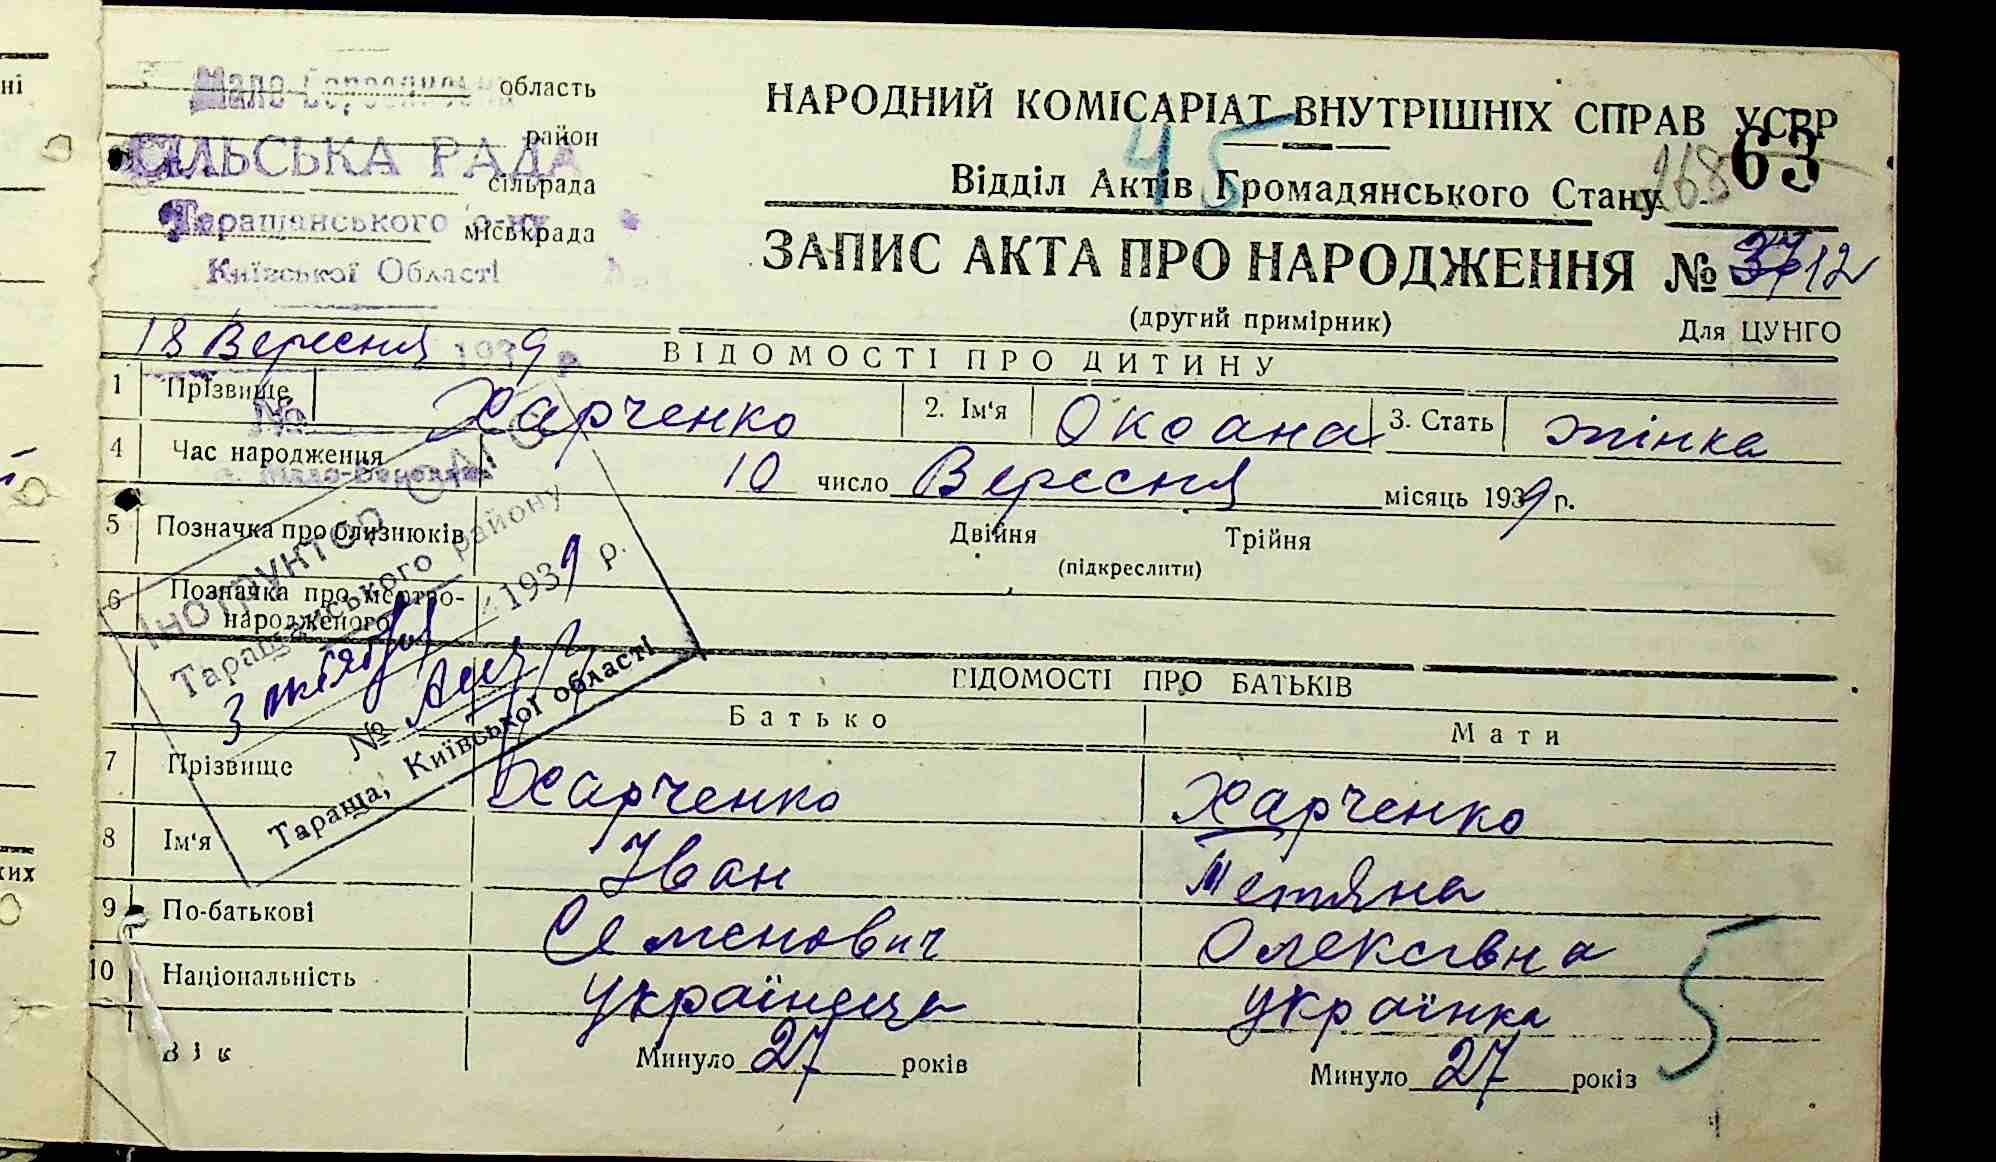 область
район
СІЛЬСЬКА РАДА
сільрада
Таращанського р-ну
міськрада
Київської Області
НАРОДНИЙ КОМІСАРІАТ ВНУТРІШНІХ СПРАВ УСРР
45
63
Відділ Актів Громадянського Стану 168
ЗАПИС АКТА ПРО НАРОДЖЕННЯ № 37 12
(другий примірник)
Для ЦУНГО
18 Вересня 1939 р.
ВІДОМОСТІ ПРО ДИТИНУ
1 Прізвище Харченко 2. Ім'я Оксана 3. Стать жінка
№
4 Час народження 10 число Вересня місяць 1939 р.
5 Позначка про близнюків Двійня Трійня
(підкреслити)
6 Позначка про мертво-
народженого
Таращанського району
3 октября 1939 р.
№
Тараща, Київської області
ВІДОМОСТІ ПРО БАТЬКІВ
Батько Мати
7 Прізвище Харченко Харченко
8 Ім'я Іван Тетяна
9 По-батькові Семенович Олексівна
10 Національність українець українка
Вік Минуло 27 років Минуло 27 років
5